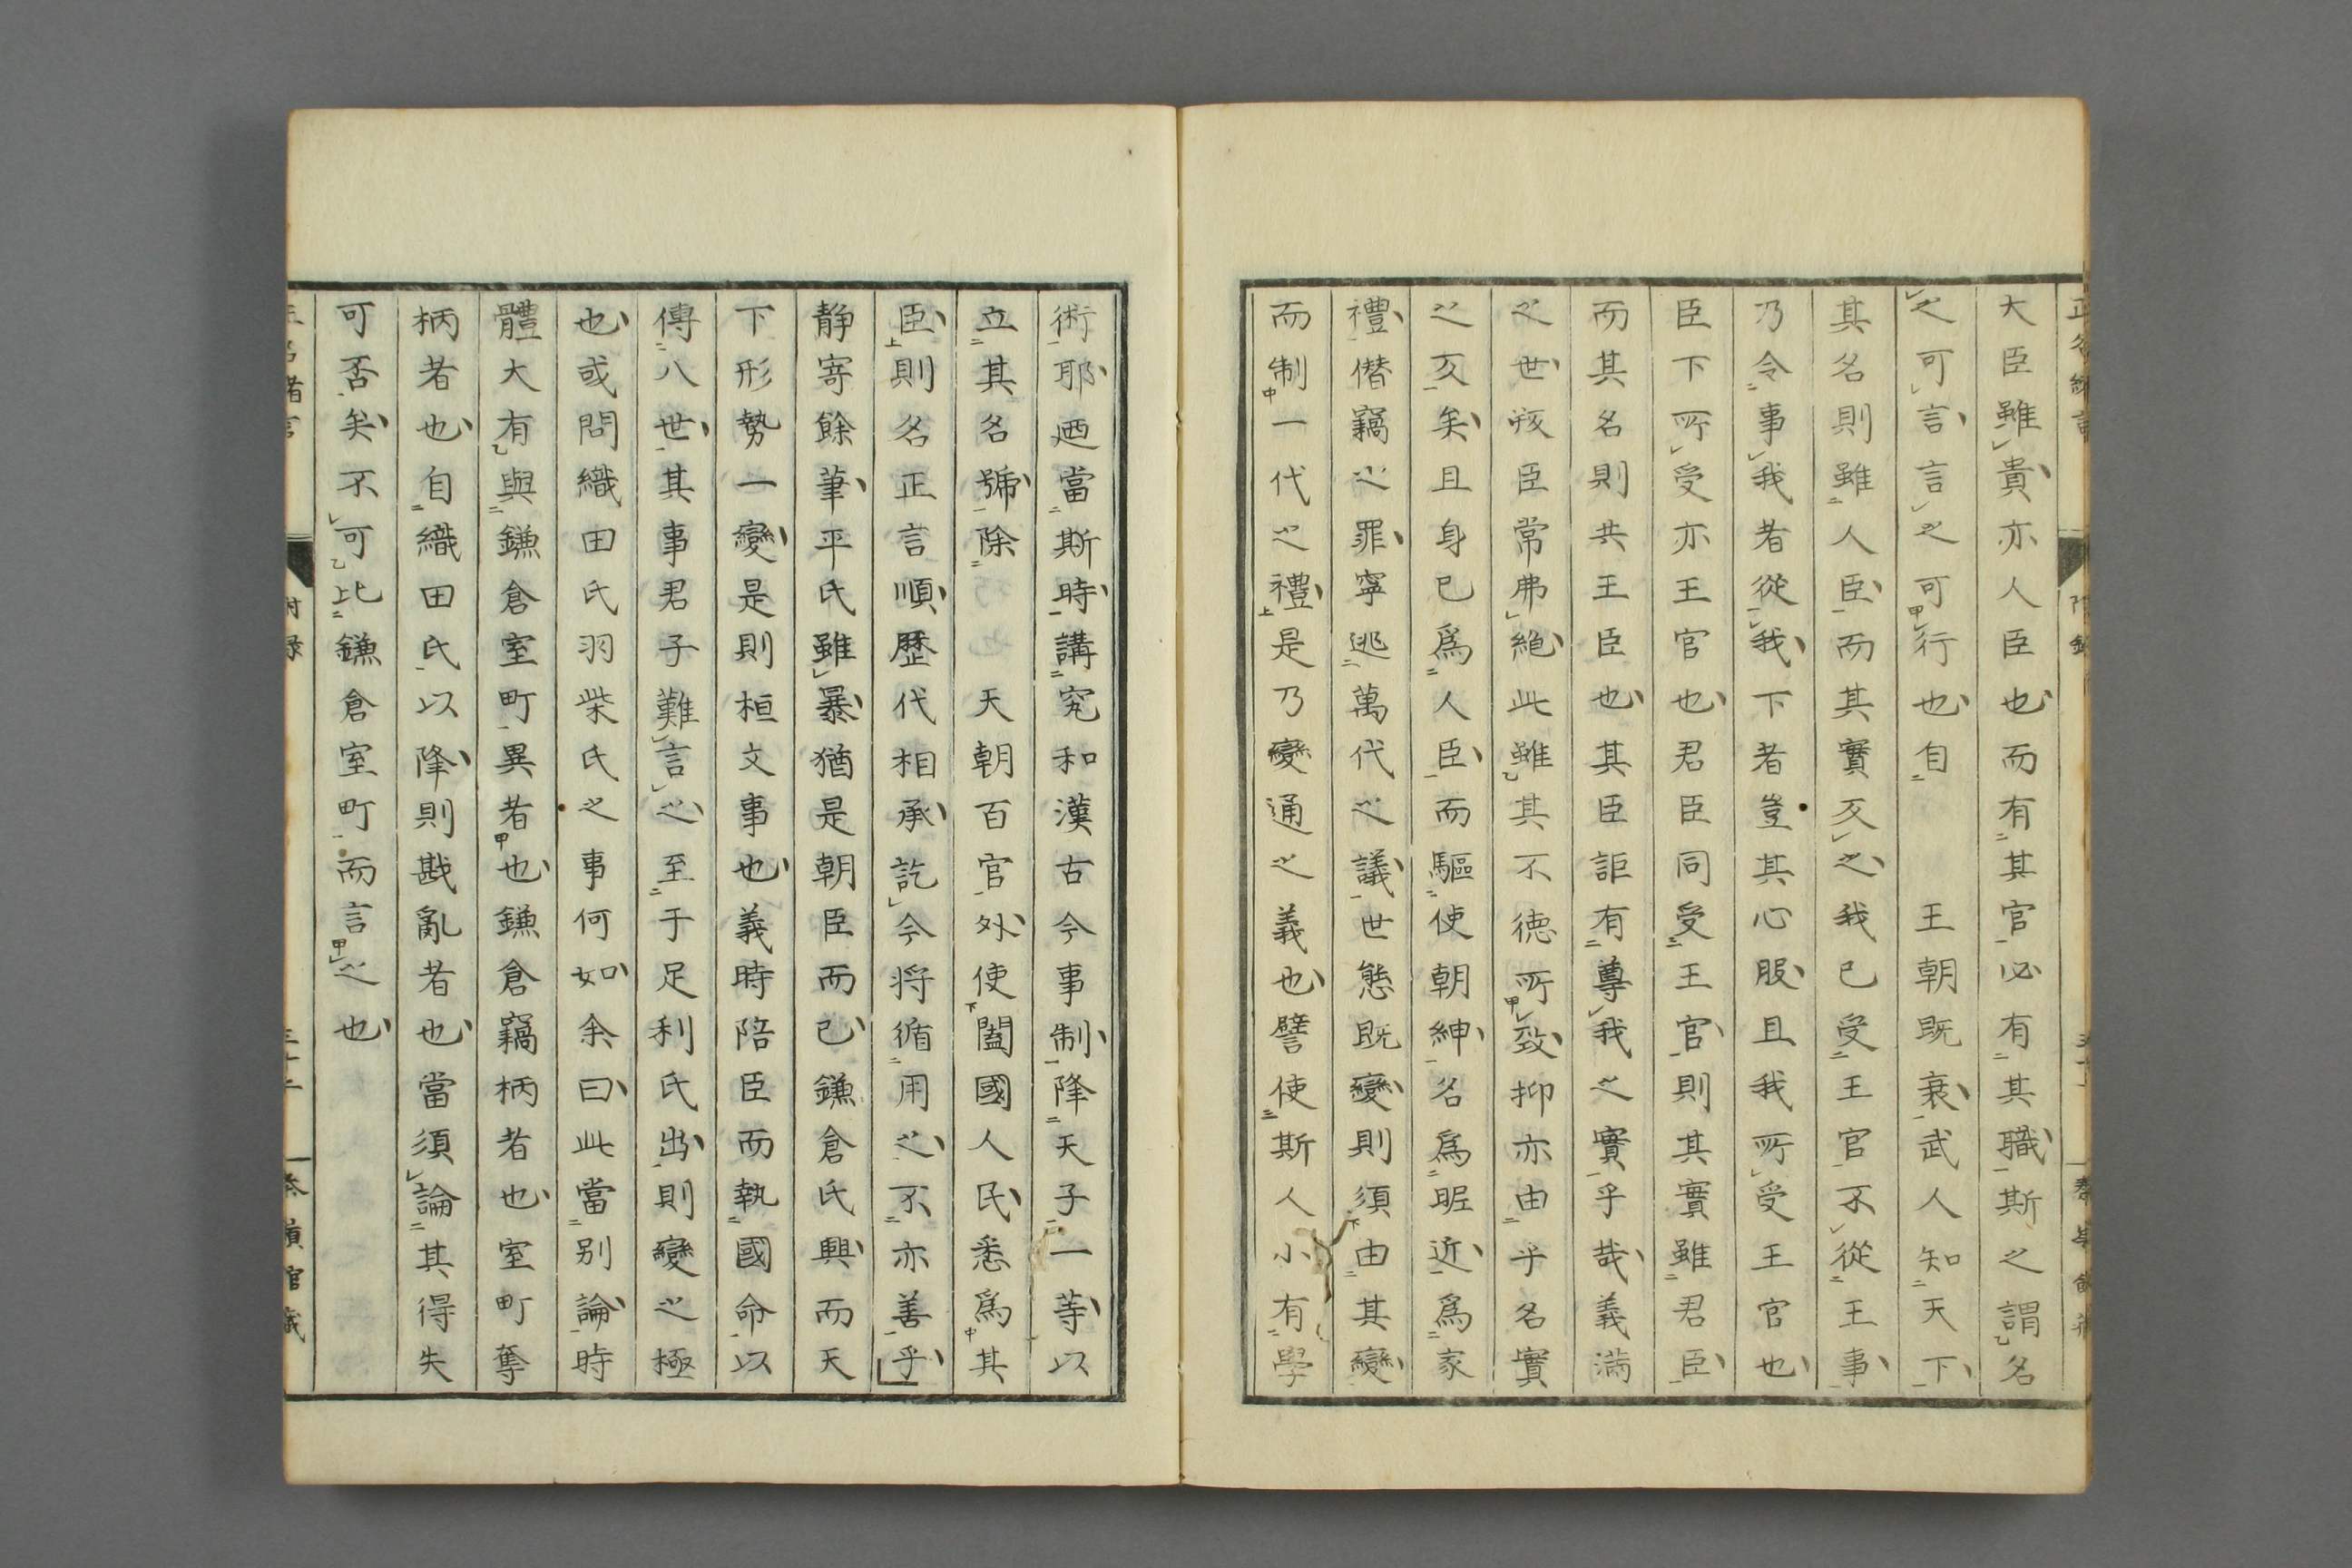 大臣雖貴亦人臣也而有其官必有其職斯之謂名
之可言言之可行也自　王朝既衰武人知天下
其名則雖人臣而其實反之我已受王官不從王事
乃令事我者從我下者豈其心服且我所受王官也
臣下所受亦王官也君臣同受王官則其實雖君臣
而其名則共王臣也其臣詎有尊我之實乎哉義滿
之世孩臣常弗絶此雖其不德所致抑亦由乎名實
之反矣且身已爲人臣而驅使朝紳名爲昵近爲家
禮僭竊之罪寧逃萬代之議世態既變則須由其變
而制一代之禮是乃變通之義也譬使斯人小有學
術耶廼當斯時講究和漢古今事制降天子一等以
立其名號除　天朝百官外使闔國人民悉爲其
臣則名正言順歷代相承訖今将循用之不亦善乎
静寄餘筆平氏雖暴猶是朝臣而已鎌倉氏興而天
下形勢一變是則桓文事也義時陪臣而執國命以
傳八世其事君子難言之至于足利氏出則變之極
也或問織田氏羽柴氏之事何如余曰此當别論時
體大有與鎌倉室町異者也鎌倉竊柄者也室町奪
柄者也自織田氏以降則戡亂者也當須論其得失
可否矣不可比鎌倉室町而言之也
附録